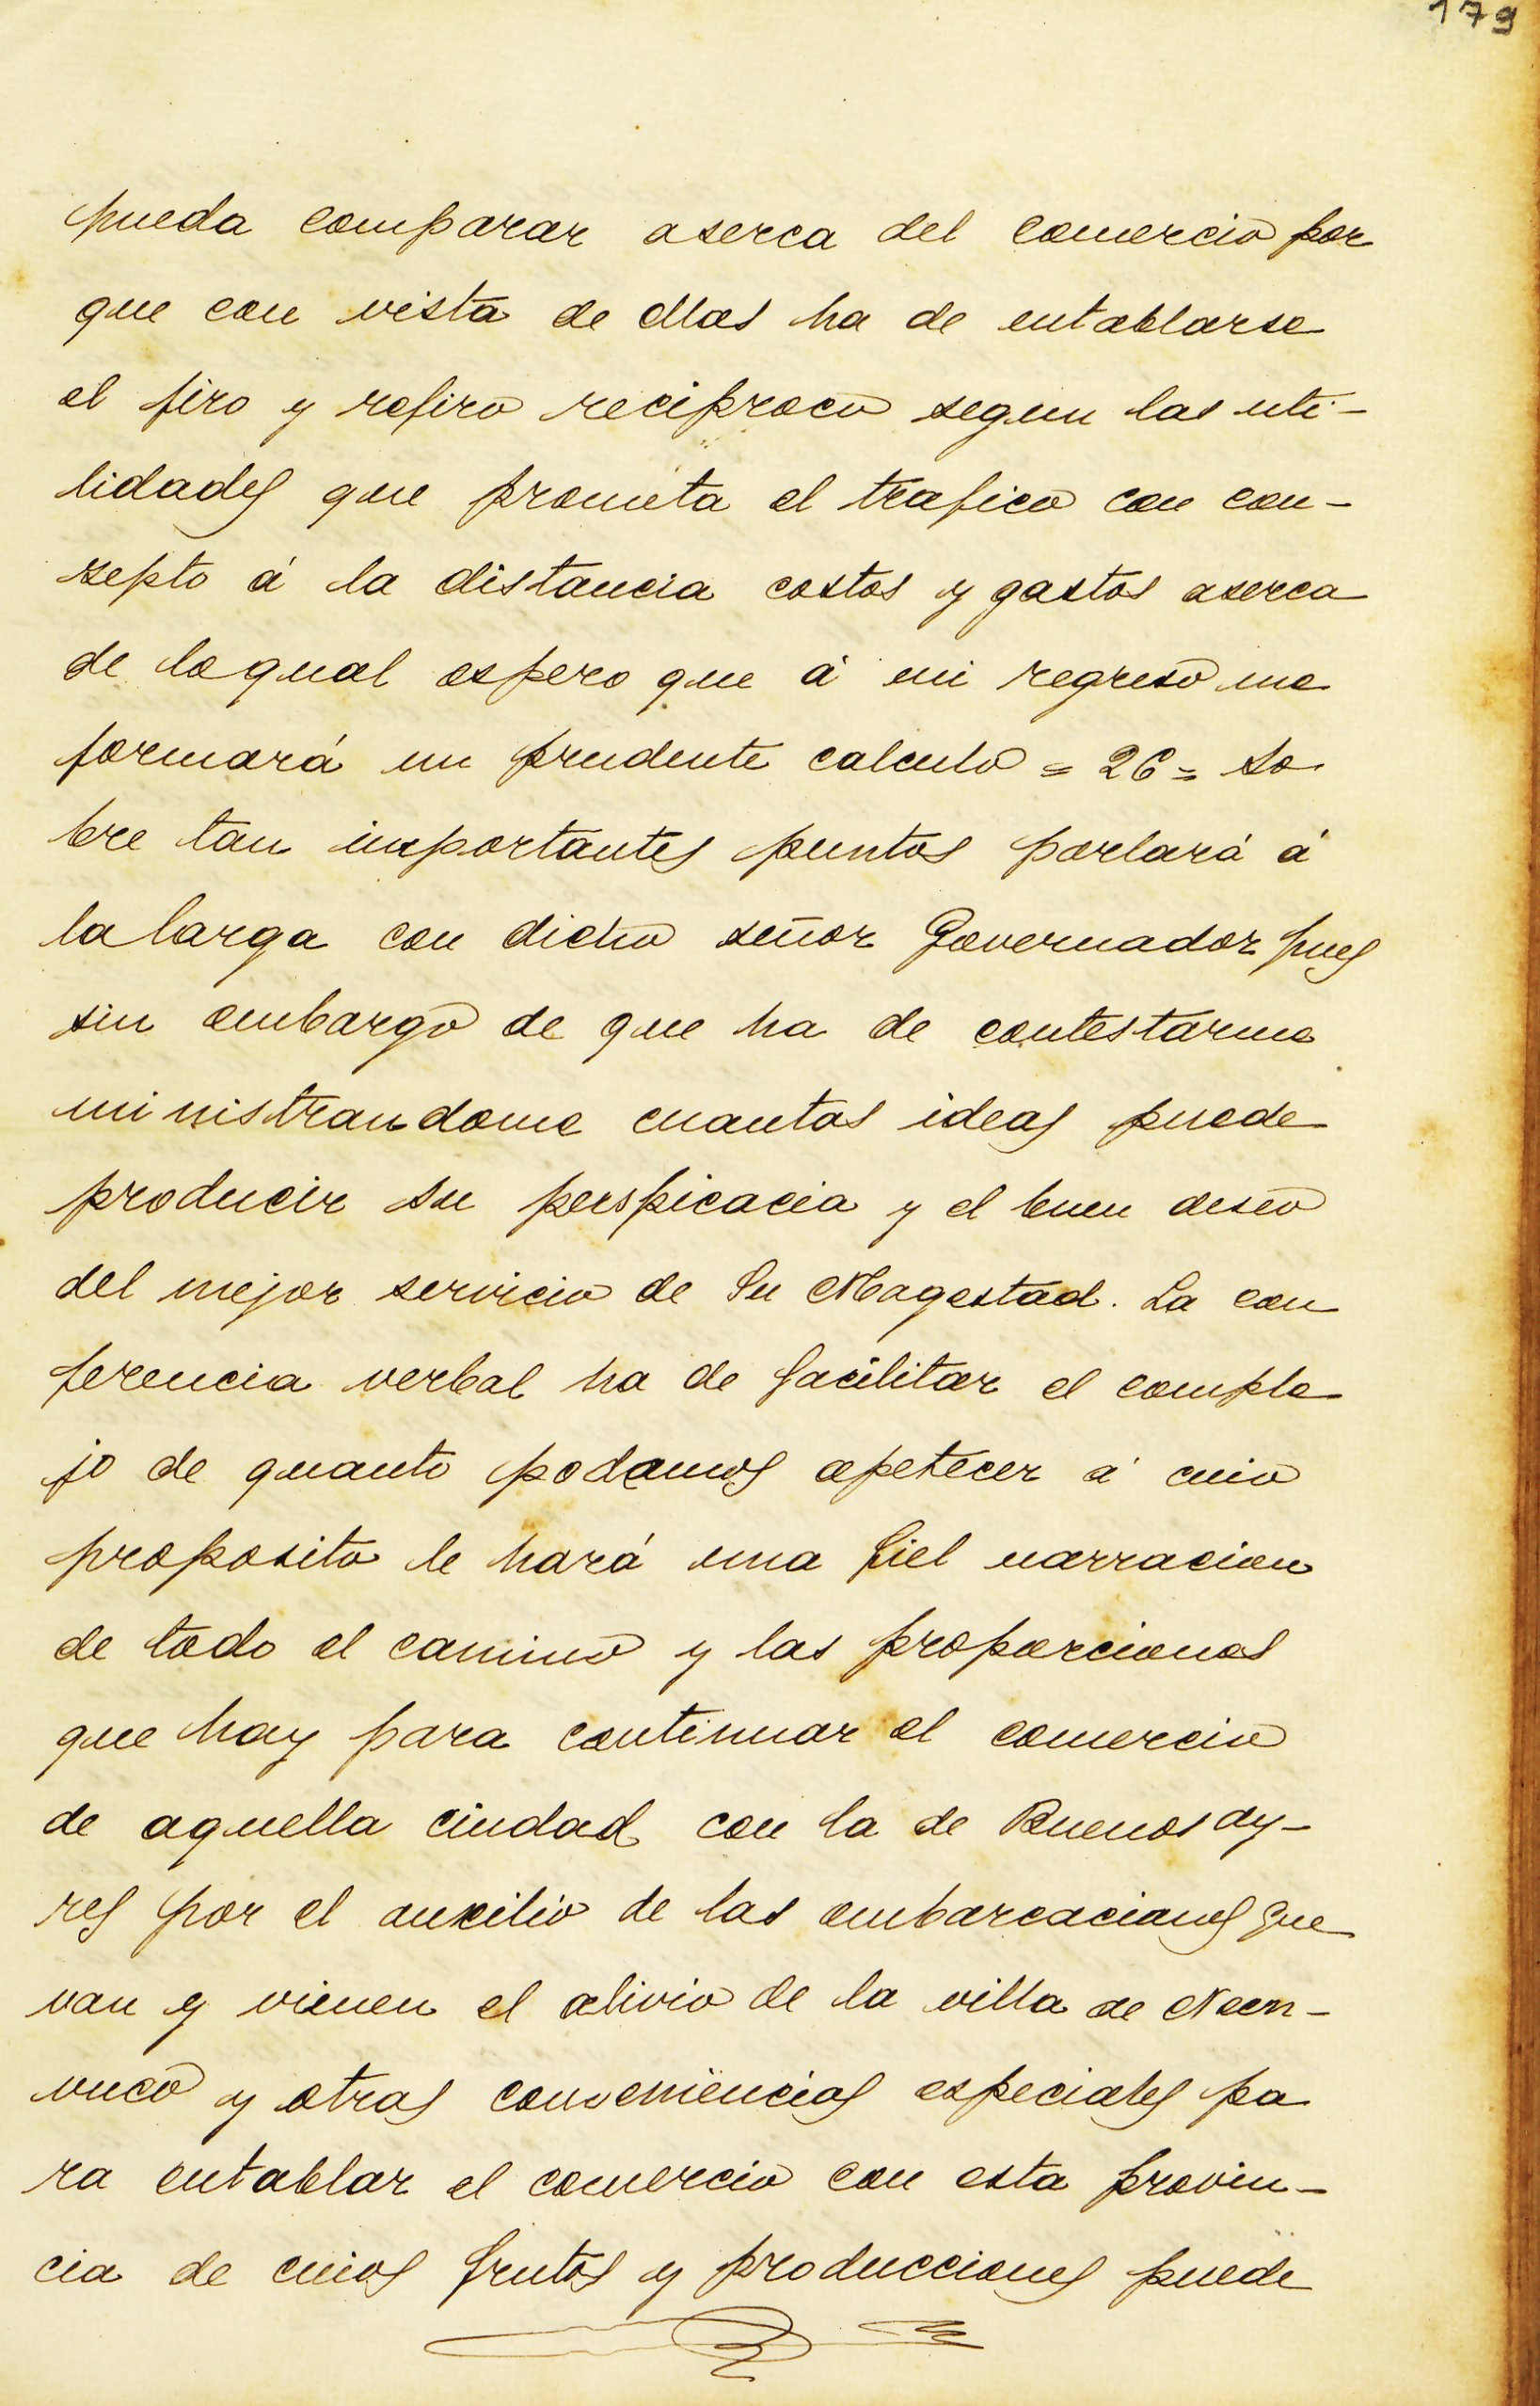 179
pueda comparar aserca del comercio por
que con vista de ellas ha de entablarse
el jiro y rejiro reciproco segun las uti-
lidades que prometa el trafico con con-
septo á la distancia costos y gastos aserca
de loqual espero que á mi regreso me
formará un prudente calculo = 26 = So
bre tan importantes puntos parlará á
la larga con dicho señor Governador pues
sin embargo de que ha de contestarme
ministrandome cuantas ideas puede
producir su perspicacia y el buen deseo
del mejor servicio de Su Magestad. La con
ferencia verbal ha de facilitar el comple
jo de quanto podamos apetecer á cuio
proposito le hará una fiel narracion
de todo el camino y las proporciones
que hay para continuar el comercio
de aquella ciudad con la de Buenos ay-
res por el auxilio de las embarcaciones que
van y vienen el alivio de la villa de Neem-
vuco y otras conveniencias especiales pa
ra entablar el comercio con esta provin-
cia de cuios frutos y producciones puede